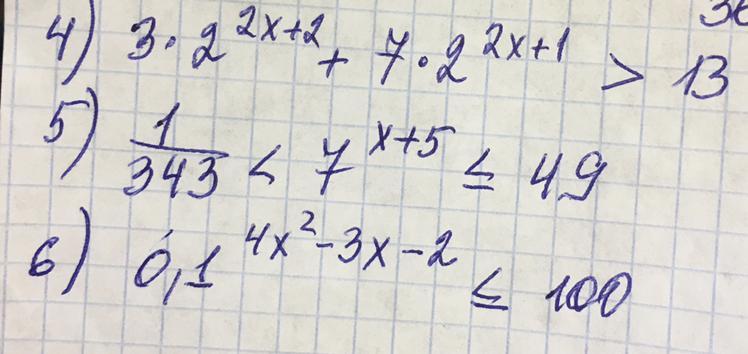 4) 3·2^{2x+2} + 7·2^{2x+1} > 13
5) \frac{1}{343} < 7^{x+5} ≤ 49
6) 0,1^{4x^2-3x-2} ≤ 100